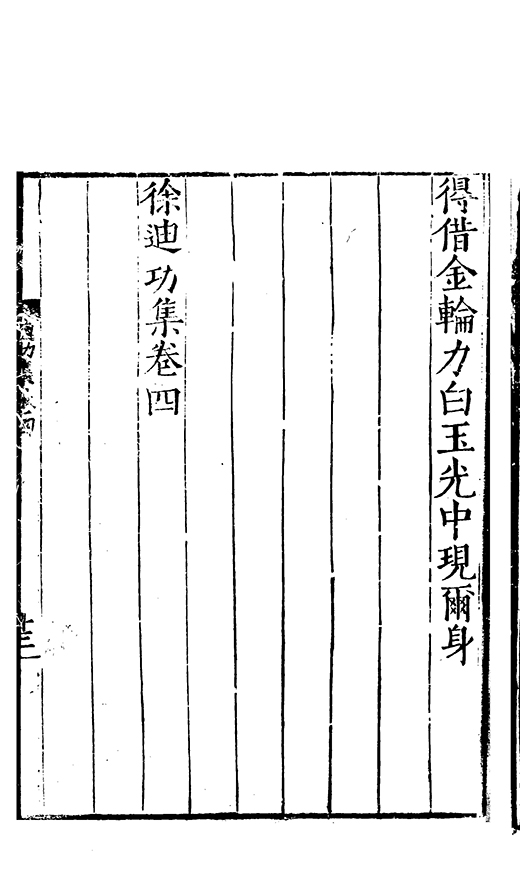 得借金輪力白玉光中現爾身
徐迪功集卷四
迪功集卷四
十三